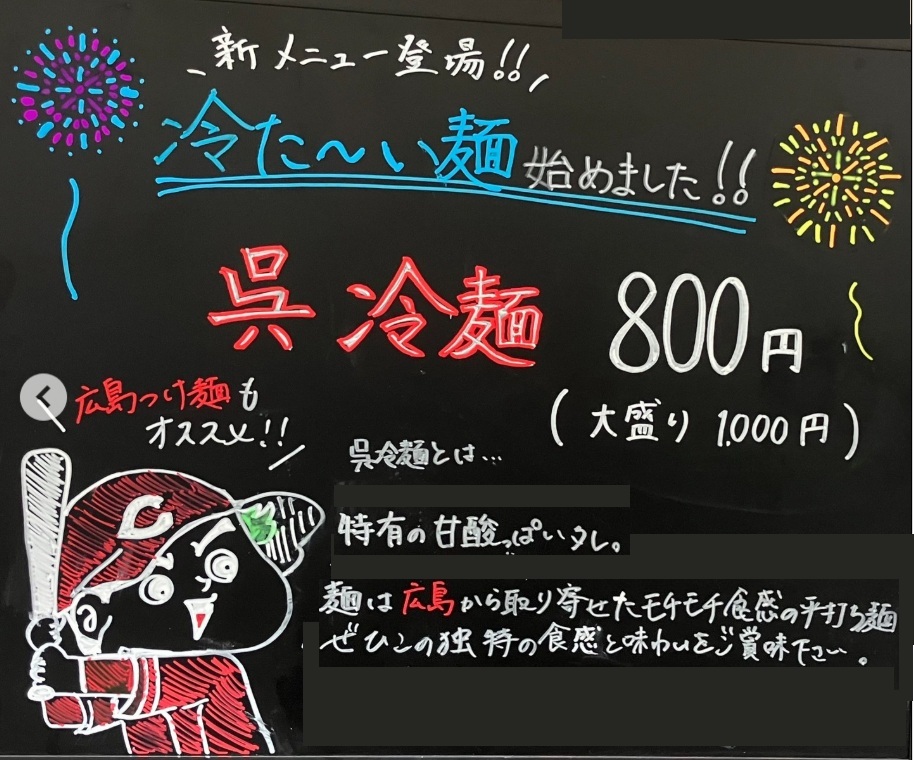 新メニュー登場!!
冷た〜い麺始めました!!
呉冷麺 800円
(大盛り 1,000円)
広島つけ麺も
オススメ!!
呉冷麺とは…
特有の甘酸っぱいタレ。
麺は広島から取り寄せたモチモチ食感の平打ち麺
ぜひこの独特の食感と味わいをご賞味下さい。
C